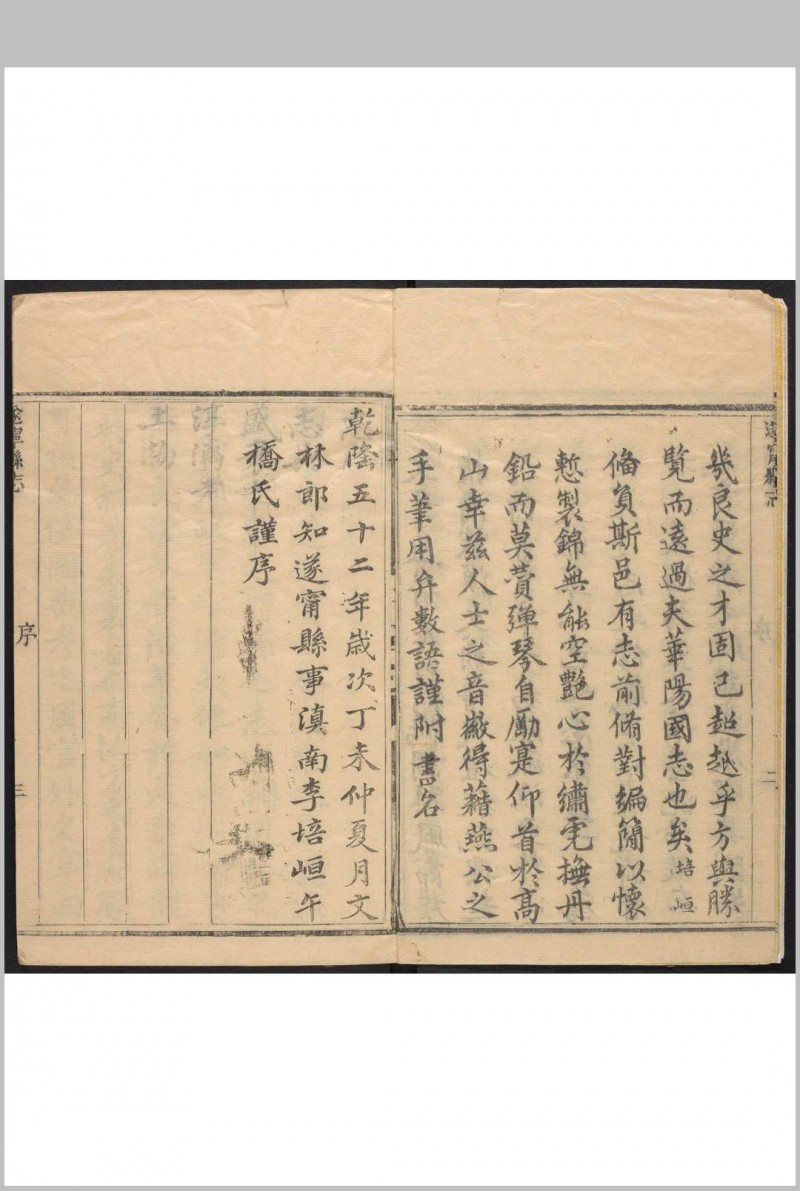 幾良史之才固已超越乎方輿勝
覽而遠過夫華陽國志也矣培峘
備負斯邑有志前脩對編簡以懷
慙製錦無能空艷心於繡虎撫丹
鉛而莫贊彈琴自勵寔仰首於高
山幸茲人士之音徽得藉燕公之
手筆用弁數語謹附書名
二
乾隆五十二年歲次丁未仲夏月文
林郎知遂甯縣事滇南李培峘午
橋氏謹序
遂寧縣志
序
三